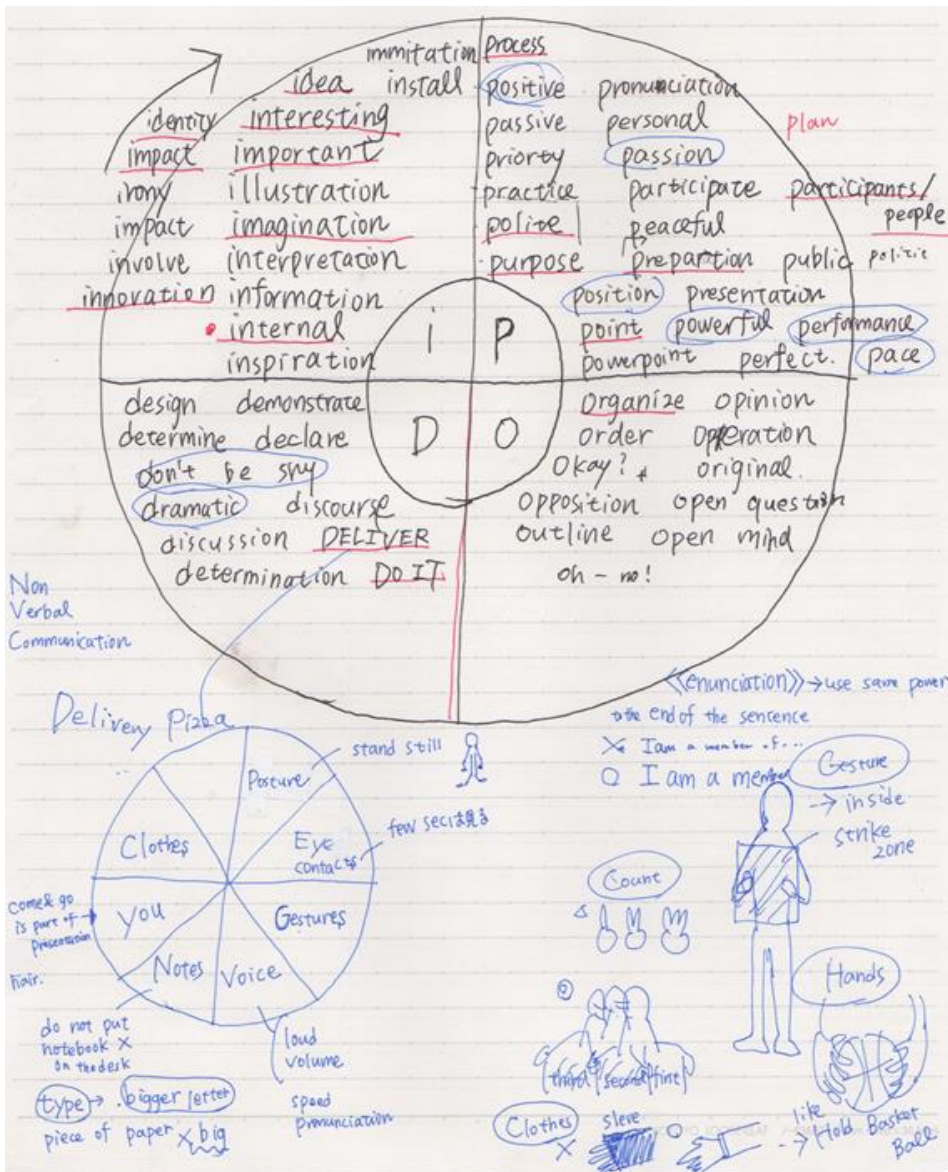 immitation
idea install
identity interesting
impact important
irony illustration
impact imagination
involve interpretation
innovation information
internal
inspiration
i
process
positive pronunciation
passive personal
plan
priorty passion
practice participate participants/
people
polite peaceful
purpose prepartion public politic
position presentation
point powerful performance
powerpoint perfect. pace
P
design demonstrate
determine declare
don't be shy
dramatic discourse
discussion DELIVER
determination DO IT
D
O
organize opinion
order operation
Okay? original.
opposition open question
outline open mind
oh - no!
Non
Verbal
Communication
Delivery Pizza
Posture
stand still
Eye
contacts
few secは見る
Gestures
Voice
loud
volume
speed
pronunciation
Notes
do not put
notebook ×
on the desk
type → bigger letter
piece of paper × big
you
come & go
is part of →
presentation
hair.
Clothes
《enunciation》→ use same power
to the end of the sentence
× I am a member of...
○ I am a member
Gesture
→ inside
strike
zone
Count
third second first
Hands
like
→ Hold Basket
Ball
Clothes
×
sleve
○